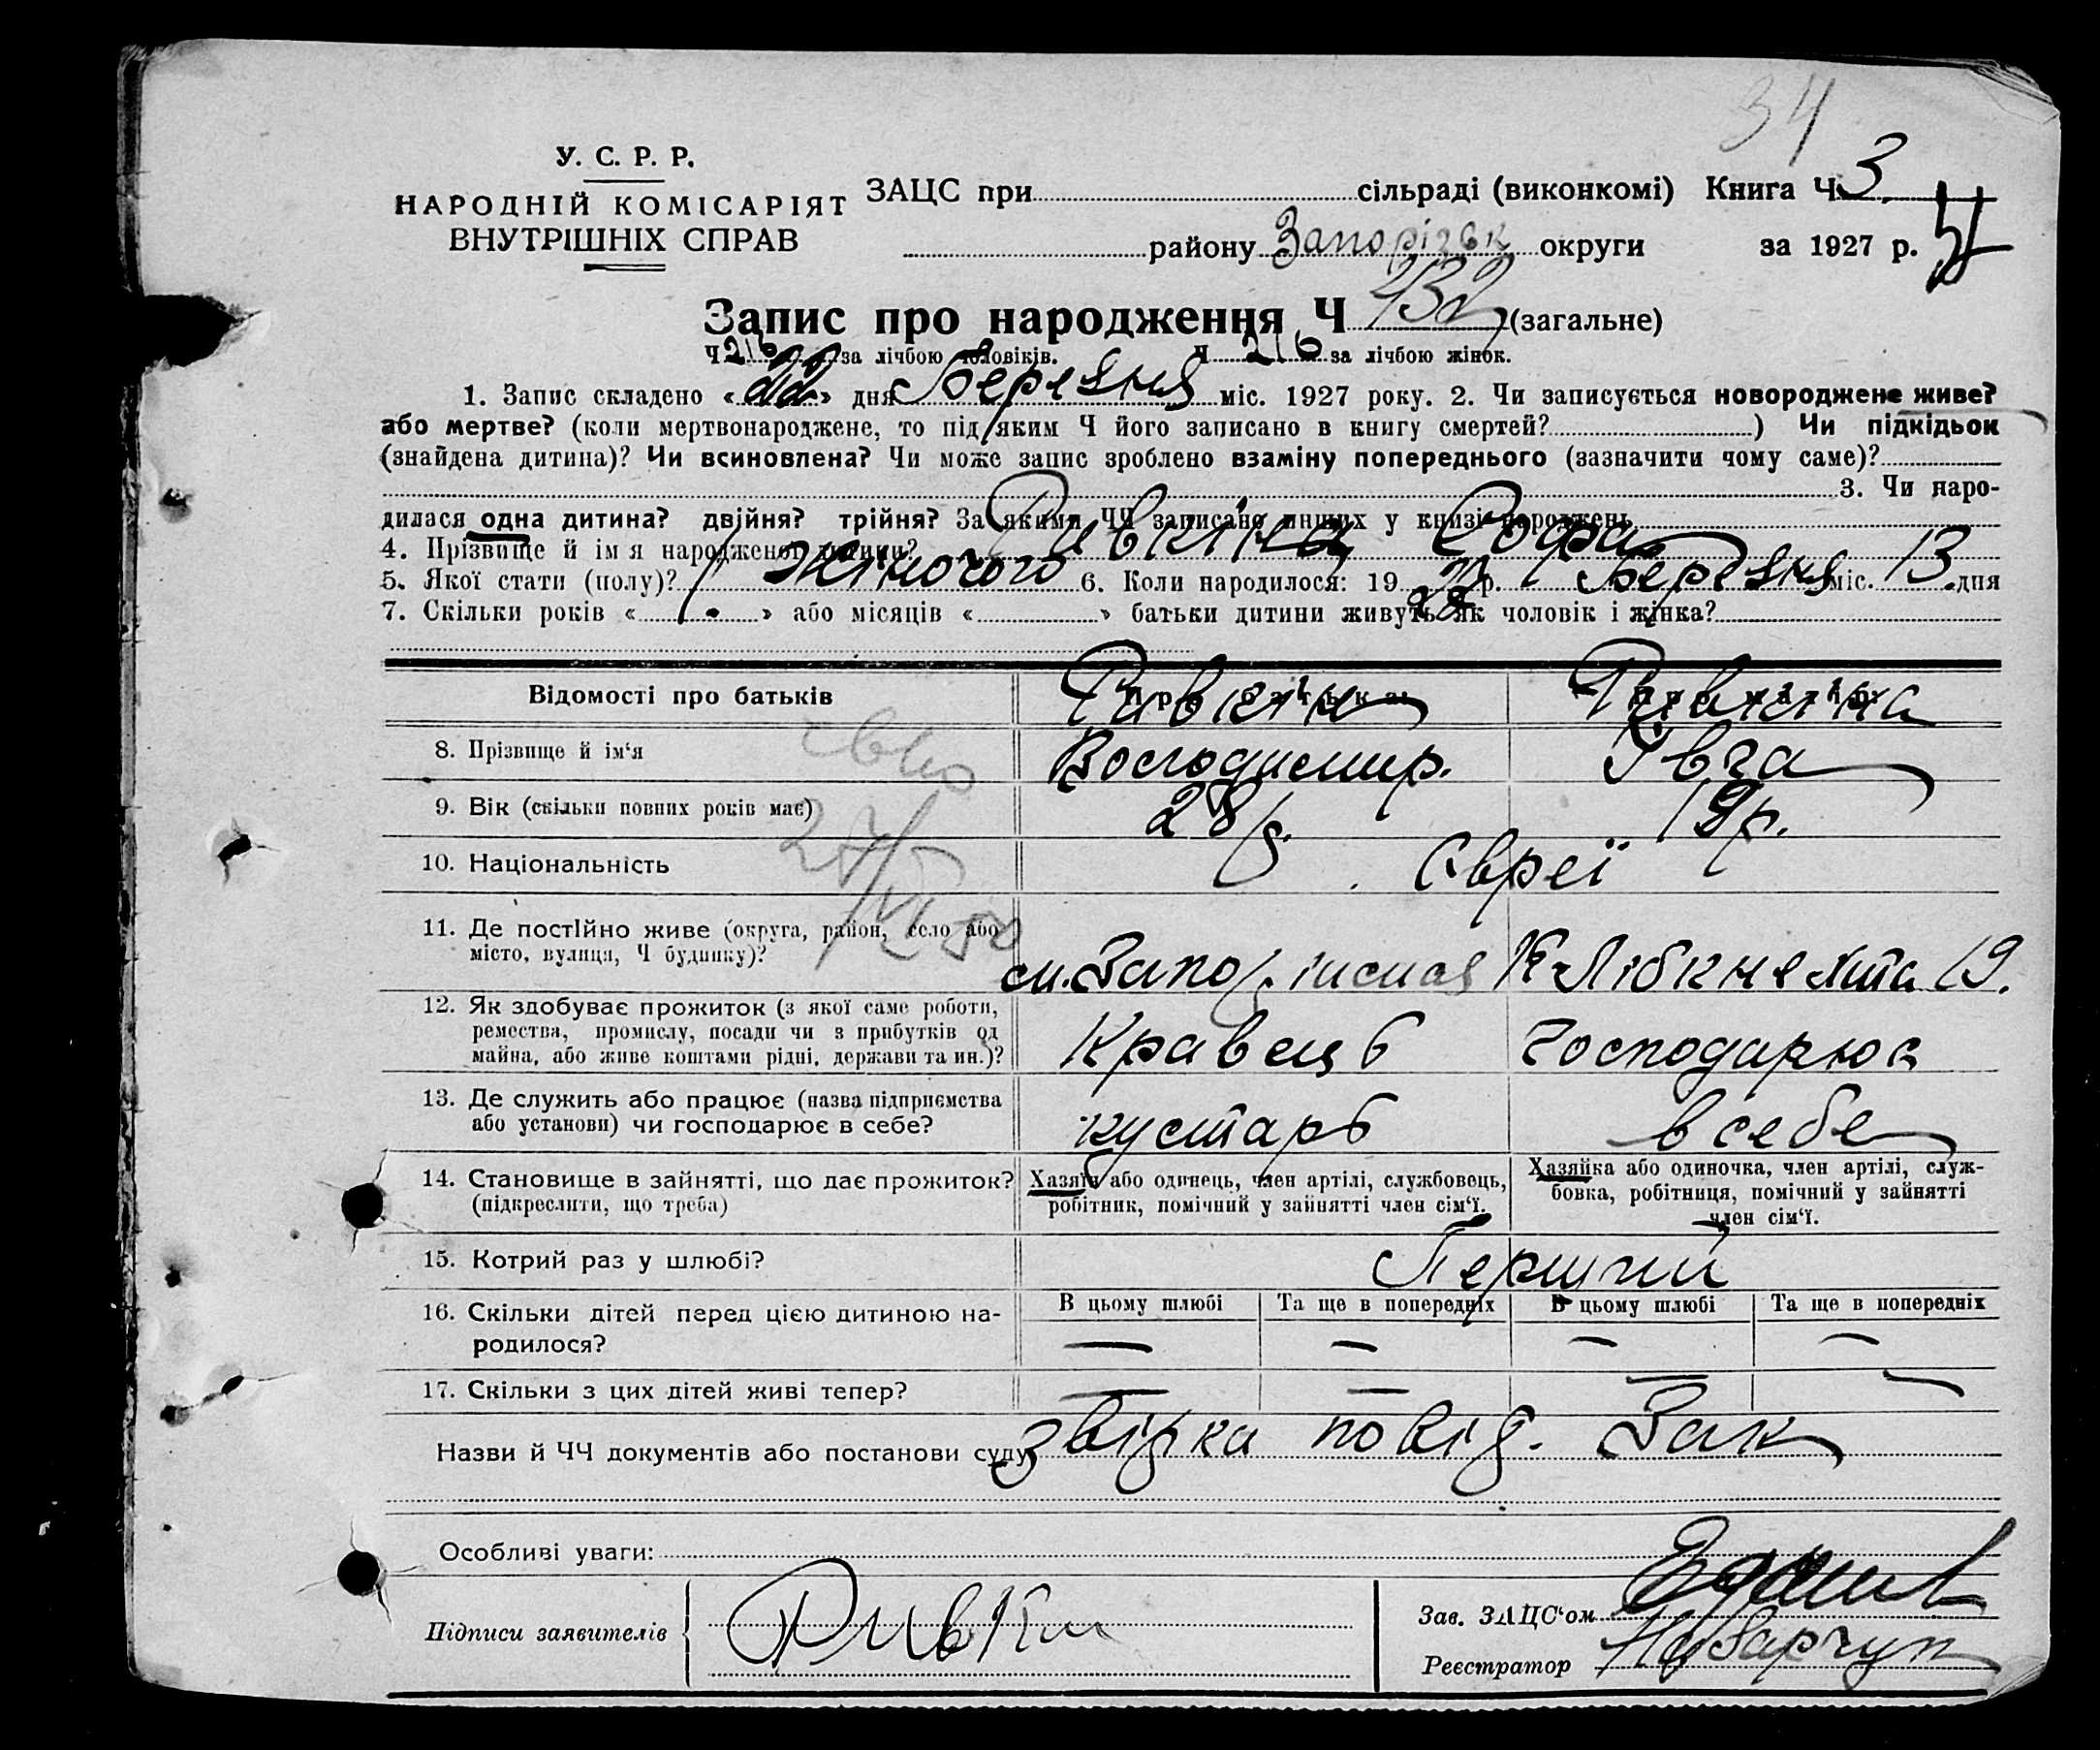 34
У. С. Р. Р.
НАРОДНІЙ КОМІСАРІЯТ
ВНУТРІШНІХ СПРАВ
ЗАЦС при сільраді (виконкомі) Книга Ч 3
району Запорізьк округи за 1927 р.
Запис про народження Ч 432 (загальне)
Ч 216 за лічбою чоловіків. Ч 216 за лічбою жінок.
1. Запис складено « 22 » дня Березня міс. 1927 року. 2. Чи записується новороджене живе?
або мертве? (коли мертвонароджене, то під яким Ч його записано в книгу смертей? ) Чи підкідьок
(знайдена дитина)? Чи всиновлена? Чи може запис зроблено взаміну попереднього (зазначити чому саме)?
3. Чи наро-
дилася одна дитина? двійня? трійня? За якими ЧЧ записано инших у книзі народжень
4. Прізвище й ім'я народженої дитини? Ривкіна Софа
5. Якої стати (полу)? Жіночого 6. Коли народилося: 19 27 р. Березня міс. 13 дня
7. Скільки років « » або місяців « » батьки дитини живуть як чоловік і жінка?
Відомості про батьків
Ривкін Ривкіна
8. Прізвище й ім'я Володимир. Івга
9. Вік (скільки повних років має) 28 р. 19 р.
10. Національність Євреї
11. Де постійно живе (округа, район, село або
місто, вулиця, Ч будинку)?
м. Запоріжжя К Лібкнехта 19.
12. Як здобуває прожиток (з якої саме роботи,
ремества, промислу, посади чи з прибутків од
майна, або живе коштами рідні, держави та ин.)?
Кравець Господарює
13. Де служить або працює (назва підприємства
або установи) чи господарює в себе?
кустарь в себе
14. Становище в зайнятті, що дає прожиток?
(підкреслити, що треба)
Хазяїн або одинець, член артілі, службовець,
робітник, помічний у зайнятті член сім'ї.
Хазяйка або одиночка, член артілі, служ-
бовка, робітниця, помічний у зайнятті
член сім'ї.
15. Котрий раз у шлюбі? Перший
16. Скільки дітей перед цією дитиною на-
родилося?
В цьому шлюбі Та ще в попередніх В цьому шлюбі Та ще в попередніх
— — — —
17. Скільки з цих дітей живі тепер? — — — —
Назви й ЧЧ документів або постанови суду звірка повід. Зак
Особливі уваги:
Підписи заявителів Ривкин
Зав. ЗАЦС'ом
Реєстратор